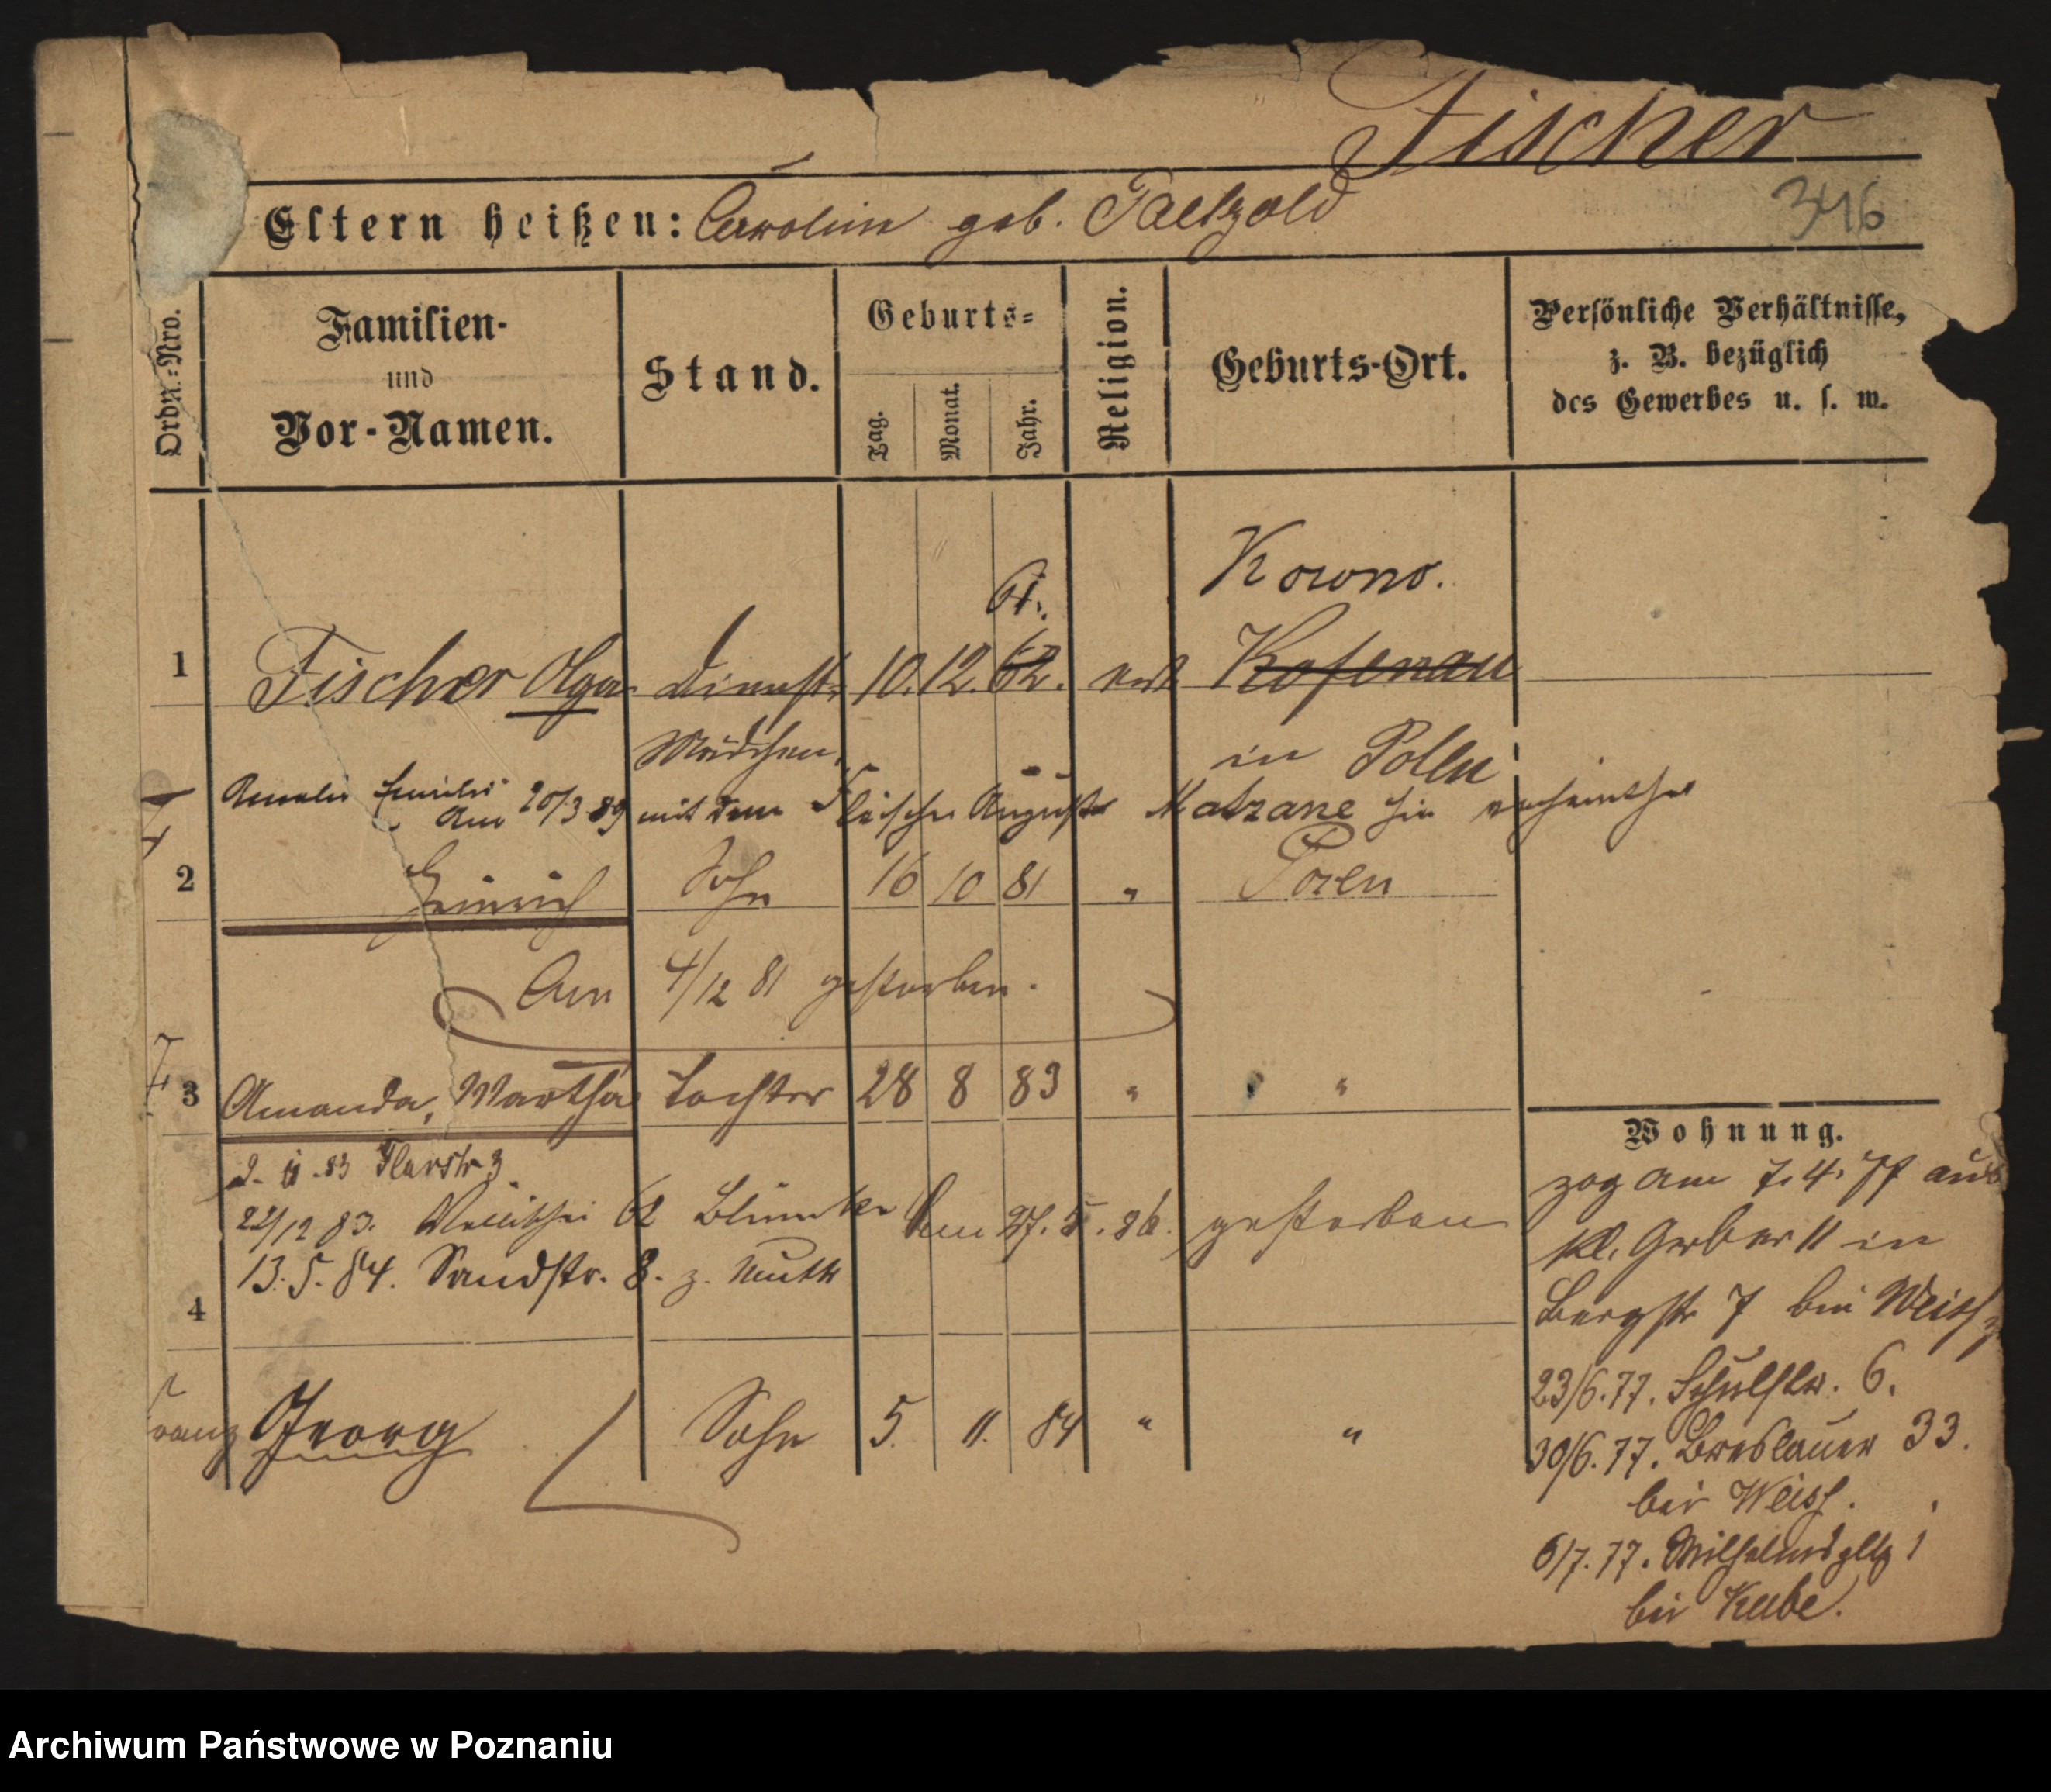 Fischer
346
Eltern heißen: Carolin geb. Paetzold
Ordn.=Nro.
Familien-
und
Vor-Namen.
Stand.
Geburts=
Tag.
Monat.
Jahr.
Religion.
Geburts-Ort.
Persönliche Verhältnisse,
z. B. bezüglich
des Gewerbes u. s. w.
Kowno.
61.
1 Fischer Olga Dienst- 10. 12. 62. Kosenau
Mädchen. in Pollen
Amalie Emilie
Am 20/3 89 mit dem Fleischer August Matzane hier verheirathet
2 Heinrich Sohn 16 10 81 " Posen
Am 4/12 81 gestorben.
3 Amanda, Martha Tochter 28 8 83 " "
Wohnung.
83 3
22/12 83. 62 Am 27. 5. 86. gestorben
13. 5. 84. Sandstr. 8. z. Mutter
4
zog am 7. 4. 77 aus
kl. Gerber 11 in
Bergstr 7 bei Weiss
23/6. 77. Schulstr. 6.
30/6. 77. Breslauer 33.
bei Weiss.
6/7. 77. Wilhelmsplz 1
bei Kube.
Franz Georg Sohn 5. 11. 84 " "
Archiwum Państwowe w Poznaniu